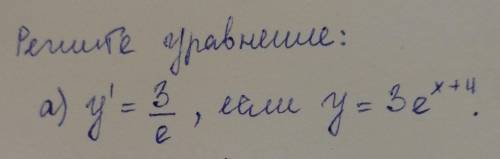 Решите уравнение:
а) y' = 3/e, если y = 3e^{x+4}.